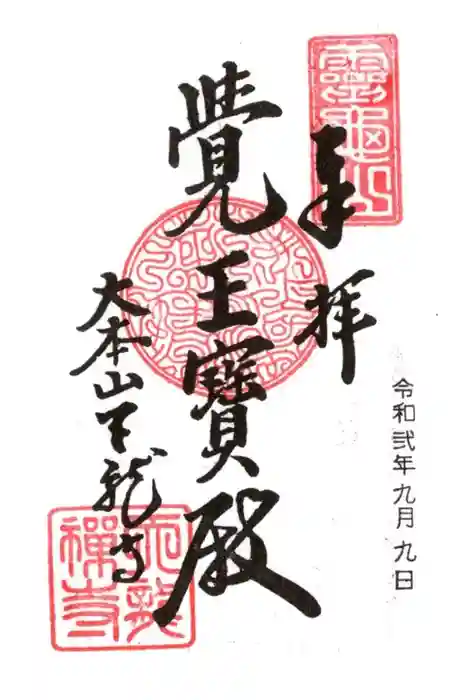 靈龜山
奉拝
令和弐年九月九日
覺王寶殿
大本山天龍寺
天龍禪寺